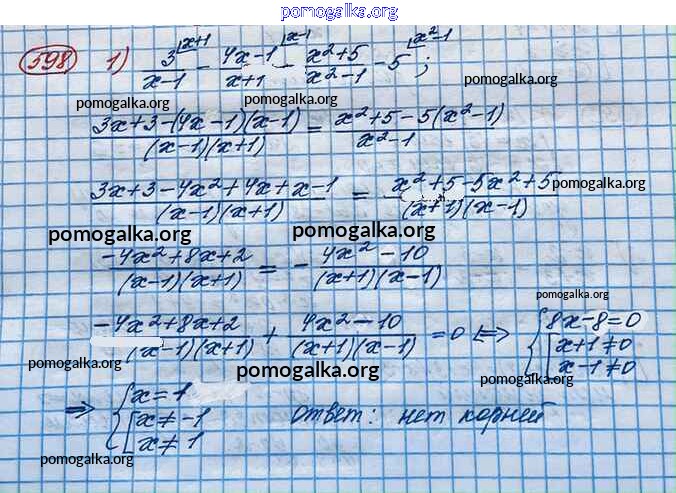 pomogalka.org
598 1) 3^{|x+1}/(x-1) - (4x-1)^{|x-1}/(x+1) = (x²+5)/(x²-1) - 5^{|x²-1};
pomogalka.org pomogalka.org
(3x+3-(4x-1)(x-1))/((x-1)(x+1)) = (x²+5-5(x²-1))/(x²-1)
pomogalka.org
(3x+3-4x²+4x+x-1)/((x-1)(x+1)) = (x²+5-5x²+5)/((x+1)(x-1))
pomogalka.org
pomogalka.org pomogalka.org
(-4x²+8x+2)/((x-1)(x+1)) = -(4x²-10)/((x+1)(x-1))
pomogalka.org
(-4x²+8x+2)/((x-1)(x+1)) + (4x²-10)/((x+1)(x-1)) = 0 <=> { 8x-8=0 [ x+1≠0 x-1≠0
pomogalka.org pomogalka.org pomogalka.org
=> { x=1 [ x≠-1 x≠1 ответ: нет корней
pomogalka.org